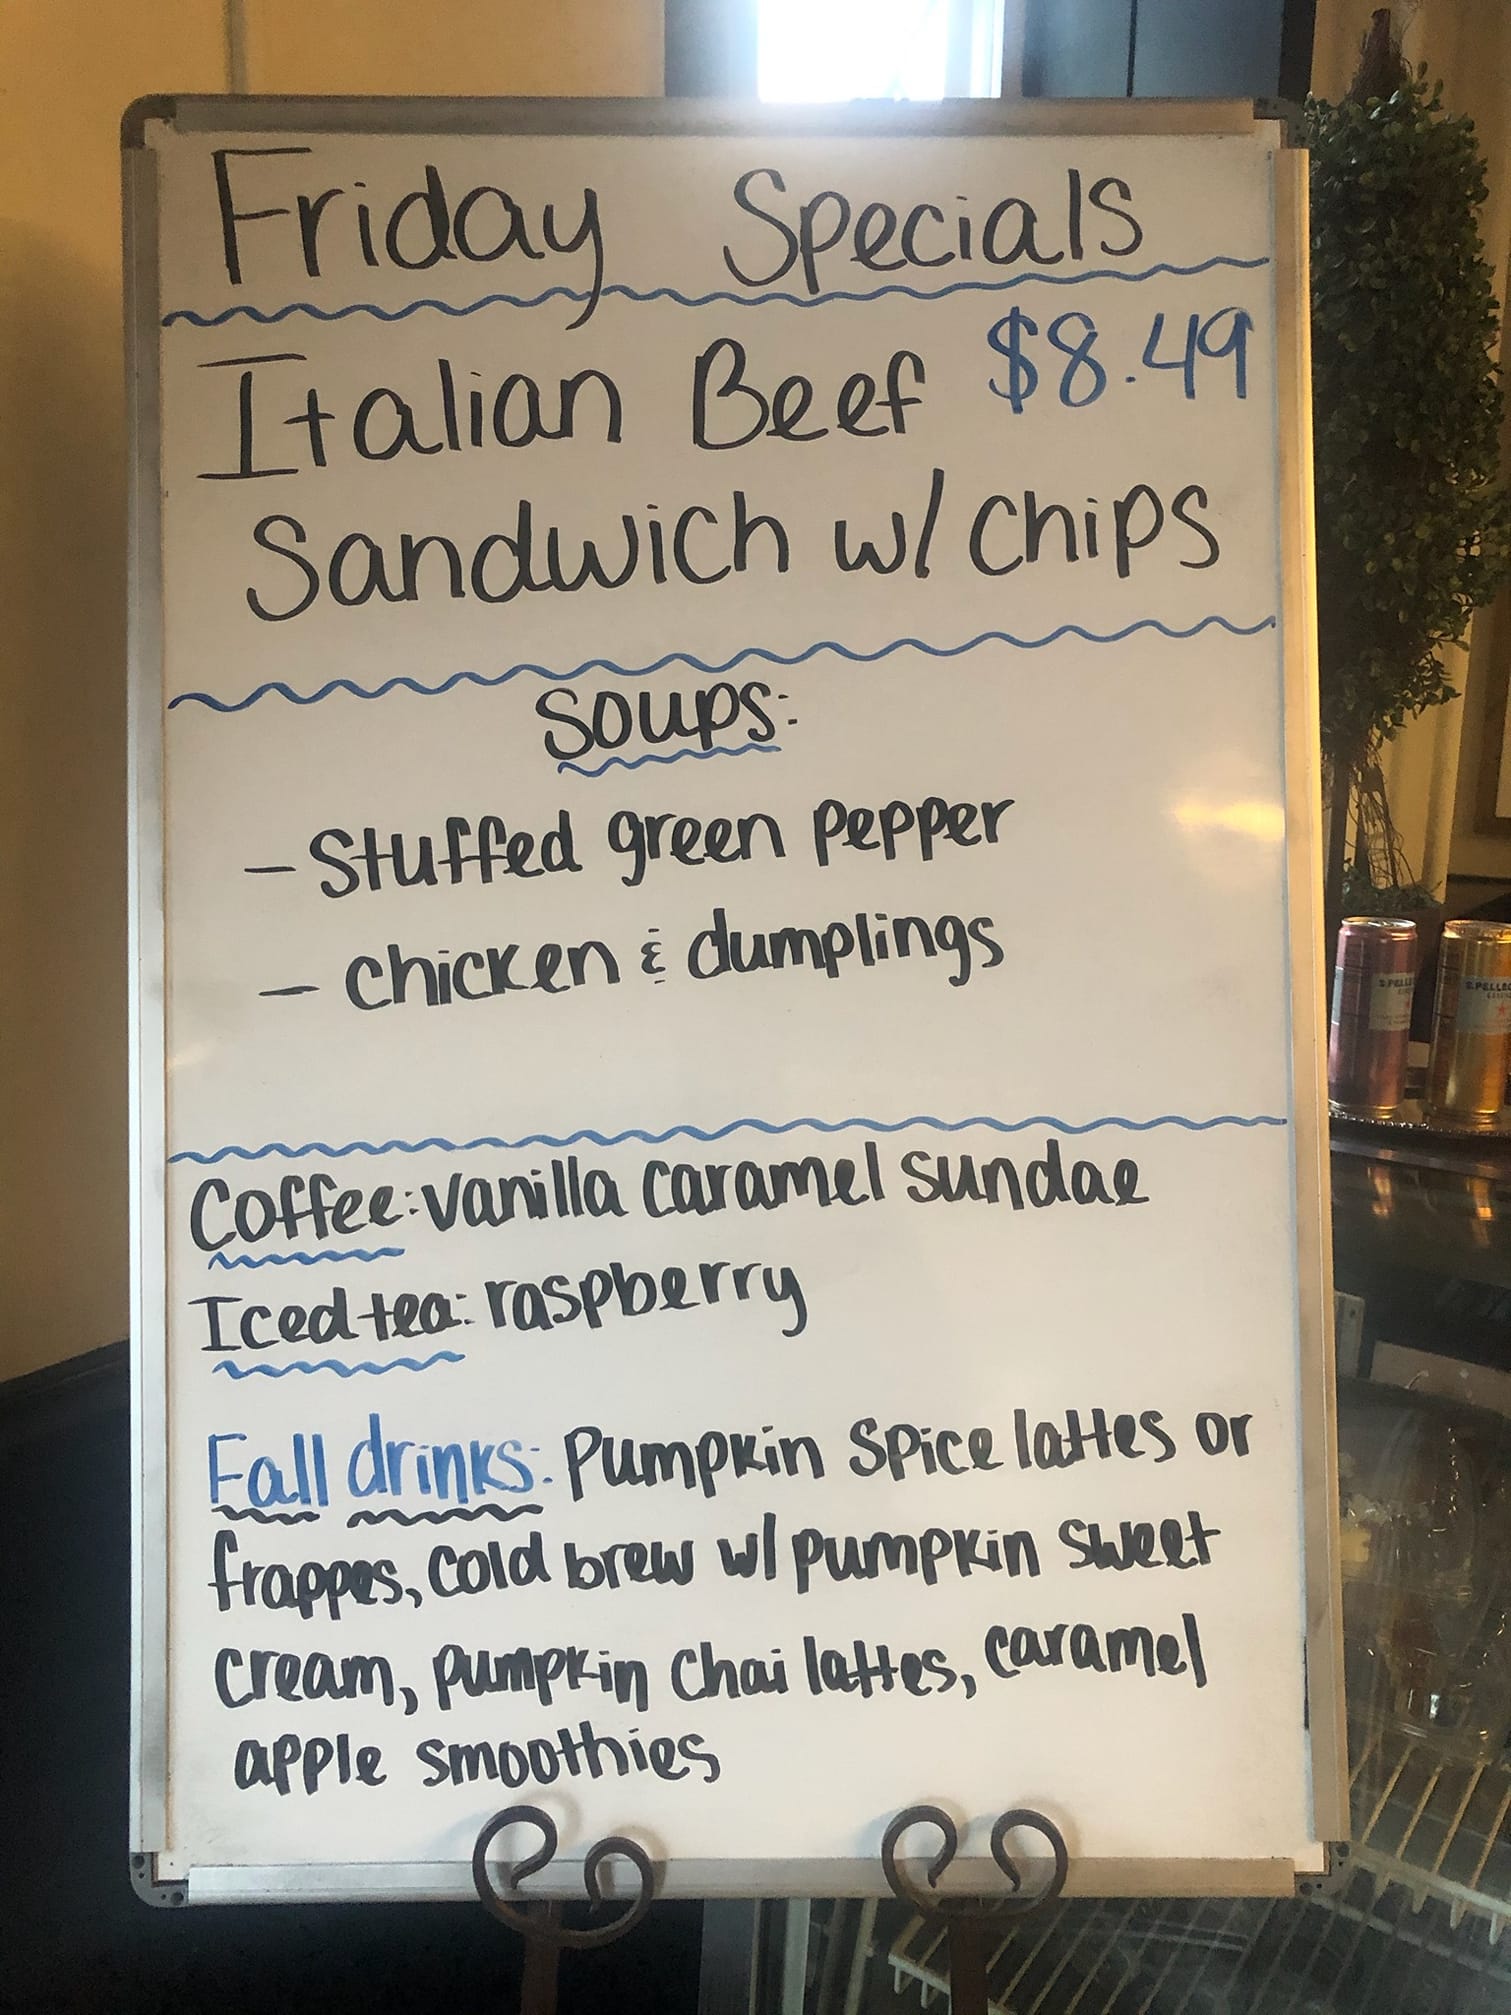 Friday Specials
Italian Beef $8.49
Sandwich w/ chips
Soups:
- Stuffed green pepper
- chicken & dumplings
Coffee: vanilla caramel sundae
Iced tea: raspberry
Fall drinks: Pumpkin spice lattes or
frappes, cold brew w/ pumpkin sweet
cream, pumpkin chai lattes, caramel
apple smoothies
S.PELL
S.PELLE